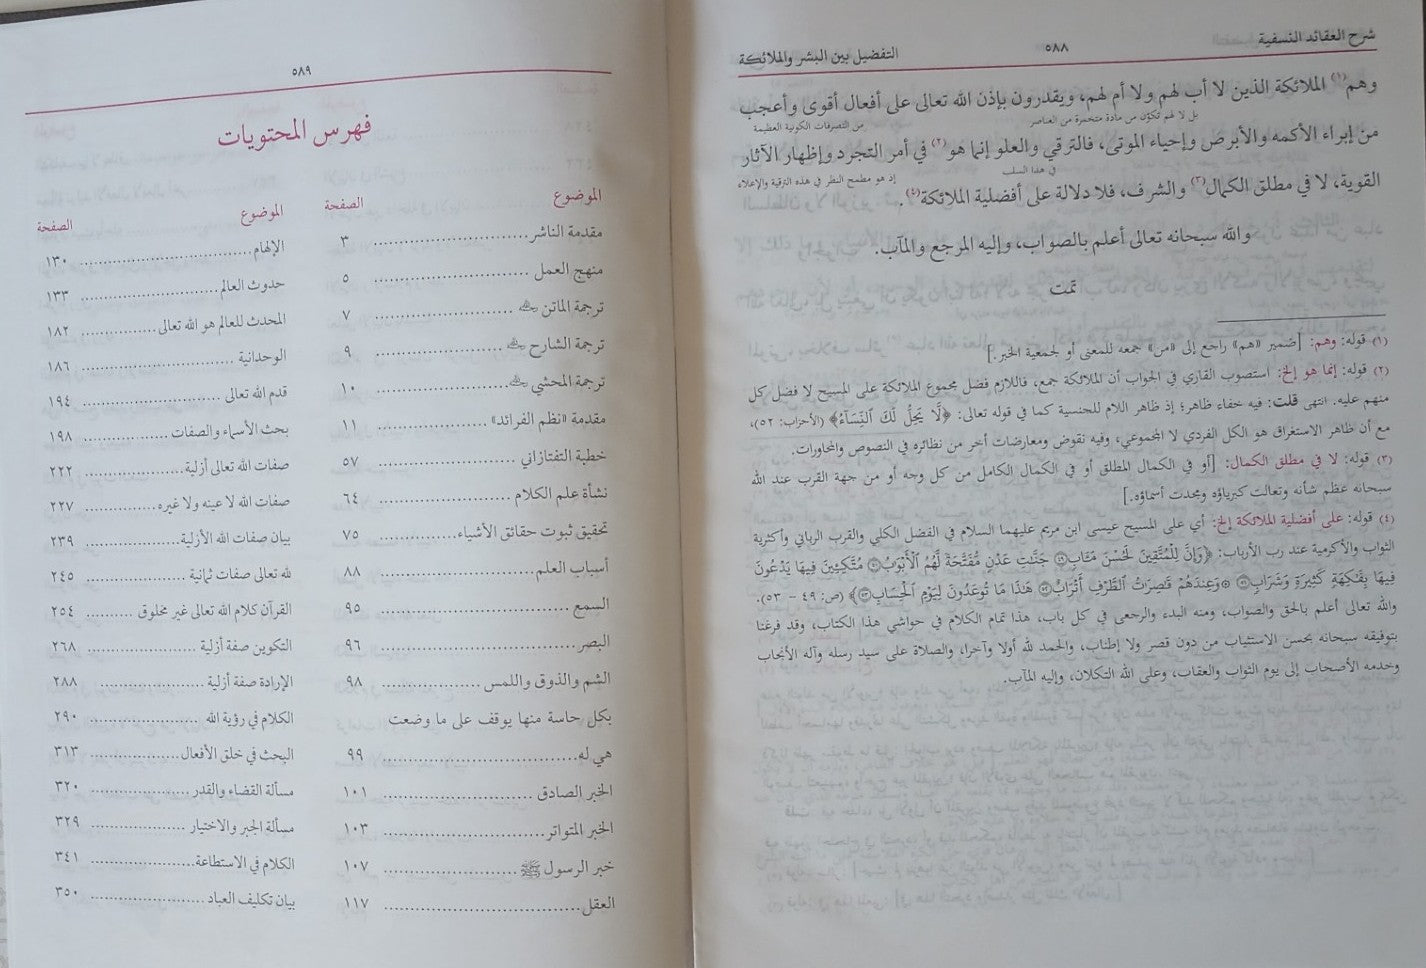 شرح العقائد النسفية
٥٨٨
التفضيل بين البشر والملائكة
وهم(١) الملائكة الذين لا أب لهم ولا أم لهم، ويقدرون بإذن الله تعالى على أفعال أقوى وأعجب
بل لا لهم تكوّن من مادة متخمرة من العناصر
من التصرفات الكونية العظيمة
من إبراء الأكمه والأبرص وإحياء الموتى، فالترقي والعلو إنما هو(٢) في أمر التجرد وإظهار الآثار
في هذا السلب
إذ هو مطمح النظر في هذه الترقية والإعلاء
القوية، لا في مطلق الكمال(٣) والشرف، فلا دلالة على أفضلية الملائكة(٤).
والله سبحانه تعالى أعلم بالصواب، وإليه المرجع والمآب.
تمت
(١) قوله: وهم: [ضمير «هم» راجع إلى «من» جمعه للمعنى أو لجمعية الخبر.]
(٢) قوله: إنما هو إلخ: استصوب القاري في الجواب أن الملائكة جمع، فاللازم فضل مجموع الملائكة على المسيح لا فضل كل
منهم عليه. انتهى قلت: فيه خفاء ظاهر؛ إذ ظاهر اللام للجنسية كما في قوله تعالى: ﴿لَّا يَحِلُّ لَكَ ٱلنِّسَآءُ﴾ (الأحزاب: ٥٢)،
مع أن ظاهر الاستغراق هو الكل الفردي لا المجموعي، وفيه نقوض ومعارضات أخر من نظائره في النصوص والمحاورات.
(٣) قوله: لا في مطلق الكمال: [أو في الكمال المطلق أو في الكمال الكامل من كل وجه أو من جهة القرب عند الله
سبحانه عظم شأنه وتعالت كبرياؤه ومجدت أسماؤه.]
(٤) قوله: على أفضلية الملائكة إلخ: أي على المسيح عيسى ابن مريم عليهما السلام في الفضل الكلي والقرب الرباني وأكثرية
الثواب والأكرمية عند رب الأرباب: ﴿وَإِنَّ لِلْمُتَّقِينَ لَحُسْنَ مَـَٔابٍ٤٩ جَنَّٰتِ عَدْنٍ مُّفَتَّحَةً لَّهُمُ ٱلْأَبْوَٰبُ٥٠ مُتَّكِـِٔينَ فِيهَا يَدْعُونَ
فِيهَا بِفَٰكِهَةٍ كَثِيرَةٍ وَشَرَابٍ٥١ ۞ وَعِندَهُمْ قَٰصِرَٰتُ ٱلطَّرْفِ أَتْرَابٌ٥٢ هَٰذَا مَا تُوعَدُونَ لِيَوْمِ ٱلْحِسَابِ٥٣﴾ (ص: ٤٩ – ٥٣).
والله تعالى أعلم بالحق والصواب، ومنه البدء والرجعى في كل باب، هذا تمام الكلام في حواشي هذا الكتاب، وقد فرغنا
بتوفيقه سبحانه بحسن الاستتباب من دون قصر ولا إطناب، والحمد لله أولا وآخرا، والصلاة على سيد رسله وآله الأنجاب
وخدمه الأصحاب إلى يوم الثواب والعقاب، وعلى الله التكلان، وإليه المآب.
٥٨٩
فهرس المحتويات
الموضوع الصفحة
مقدمة الناشر .............................. ٣
منهج العمل .............................. ٥
ترجمة الماتن رحمه الله .............................. ٧
ترجمة الشارح رحمه الله .............................. ٩
ترجمة المحشي رحمه الله .............................. ١٠
مقدمة «نظم الفرائد» .............................. ١١
خطبة التفتازاني .............................. ٥٧
نشأة علم الكلام .............................. ٦٤
تحقيق ثبوت حقائق الأشياء .............................. ٧٥
أسباب العلم .............................. ٨٨
السمع .............................. ٩٥
البصر .............................. ٩٦
الشم والذوق واللمس .............................. ٩٨
بكل حاسة منها يوقف على ما وضعت
هي له .............................. ٩٩
الخبر الصادق .............................. ١٠١
الخبر المتواتر .............................. ١٠٣
خبر الرسول ﷺ .............................. ١٠٧
العقل .............................. ١١٧
الموضوع الصفحة
الإلهام .............................. ١٣٠
حدوث العالم .............................. ١٣٣
المحدث للعالم هو الله تعالى .............................. ١٨٢
الوحدانية .............................. ١٨٦
قدم الله تعالى .............................. ١٩٤
بحث الأسماء والصفات .............................. ١٩٨
صفات الله تعالى أزلية .............................. ٢٢٢
صفات الله لا عينه ولا غيره .............................. ٢٢٧
بيان صفات الله الأزلية .............................. ٢٣٩
لله تعالى صفات ثمانية .............................. ٢٤٥
القرآن كلام الله تعالى غير مخلوق .............................. ٢٥٤
التكوين صفة أزلية .............................. ٢٦٨
الإرادة صفة أزلية .............................. ٢٨٨
الكلام في رؤية الله .............................. ٢٩٠
البحث في خلق الأفعال .............................. ٣١٣
مسألة القضاء والقدر .............................. ٣٢٠
مسألة الجبر والاختيار .............................. ٣٢٩
الكلام في الاستطاعة .............................. ٣٤١
بيان تكليف العباد .............................. ٣٥٠